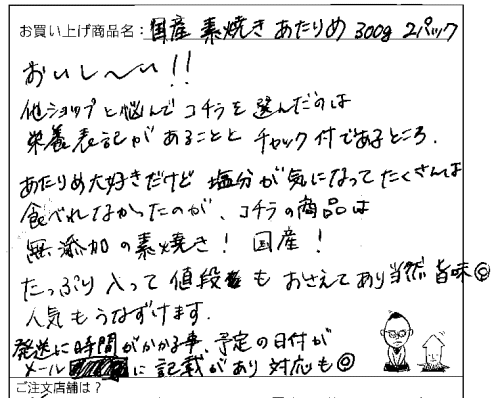 お買い上げ商品名：国産 素焼き あたりめ 300g 2パック
おいし～い!!
他ショップと悩んでコチラを選んだのは
栄養表記があることと チャック付であるところ.
あたりめ大好きだけど 塩分が気になってたくさんは
食べれなかったのが、コチラの商品は
無添加の素焼き! 国産!
たっぷり入って値段も おさえてあり当然 旨味◎
人気もうなずけます.
発送に時間がかかる事、予定の日付が
メール に記載があり 対応も◎
ご注文店舗は？